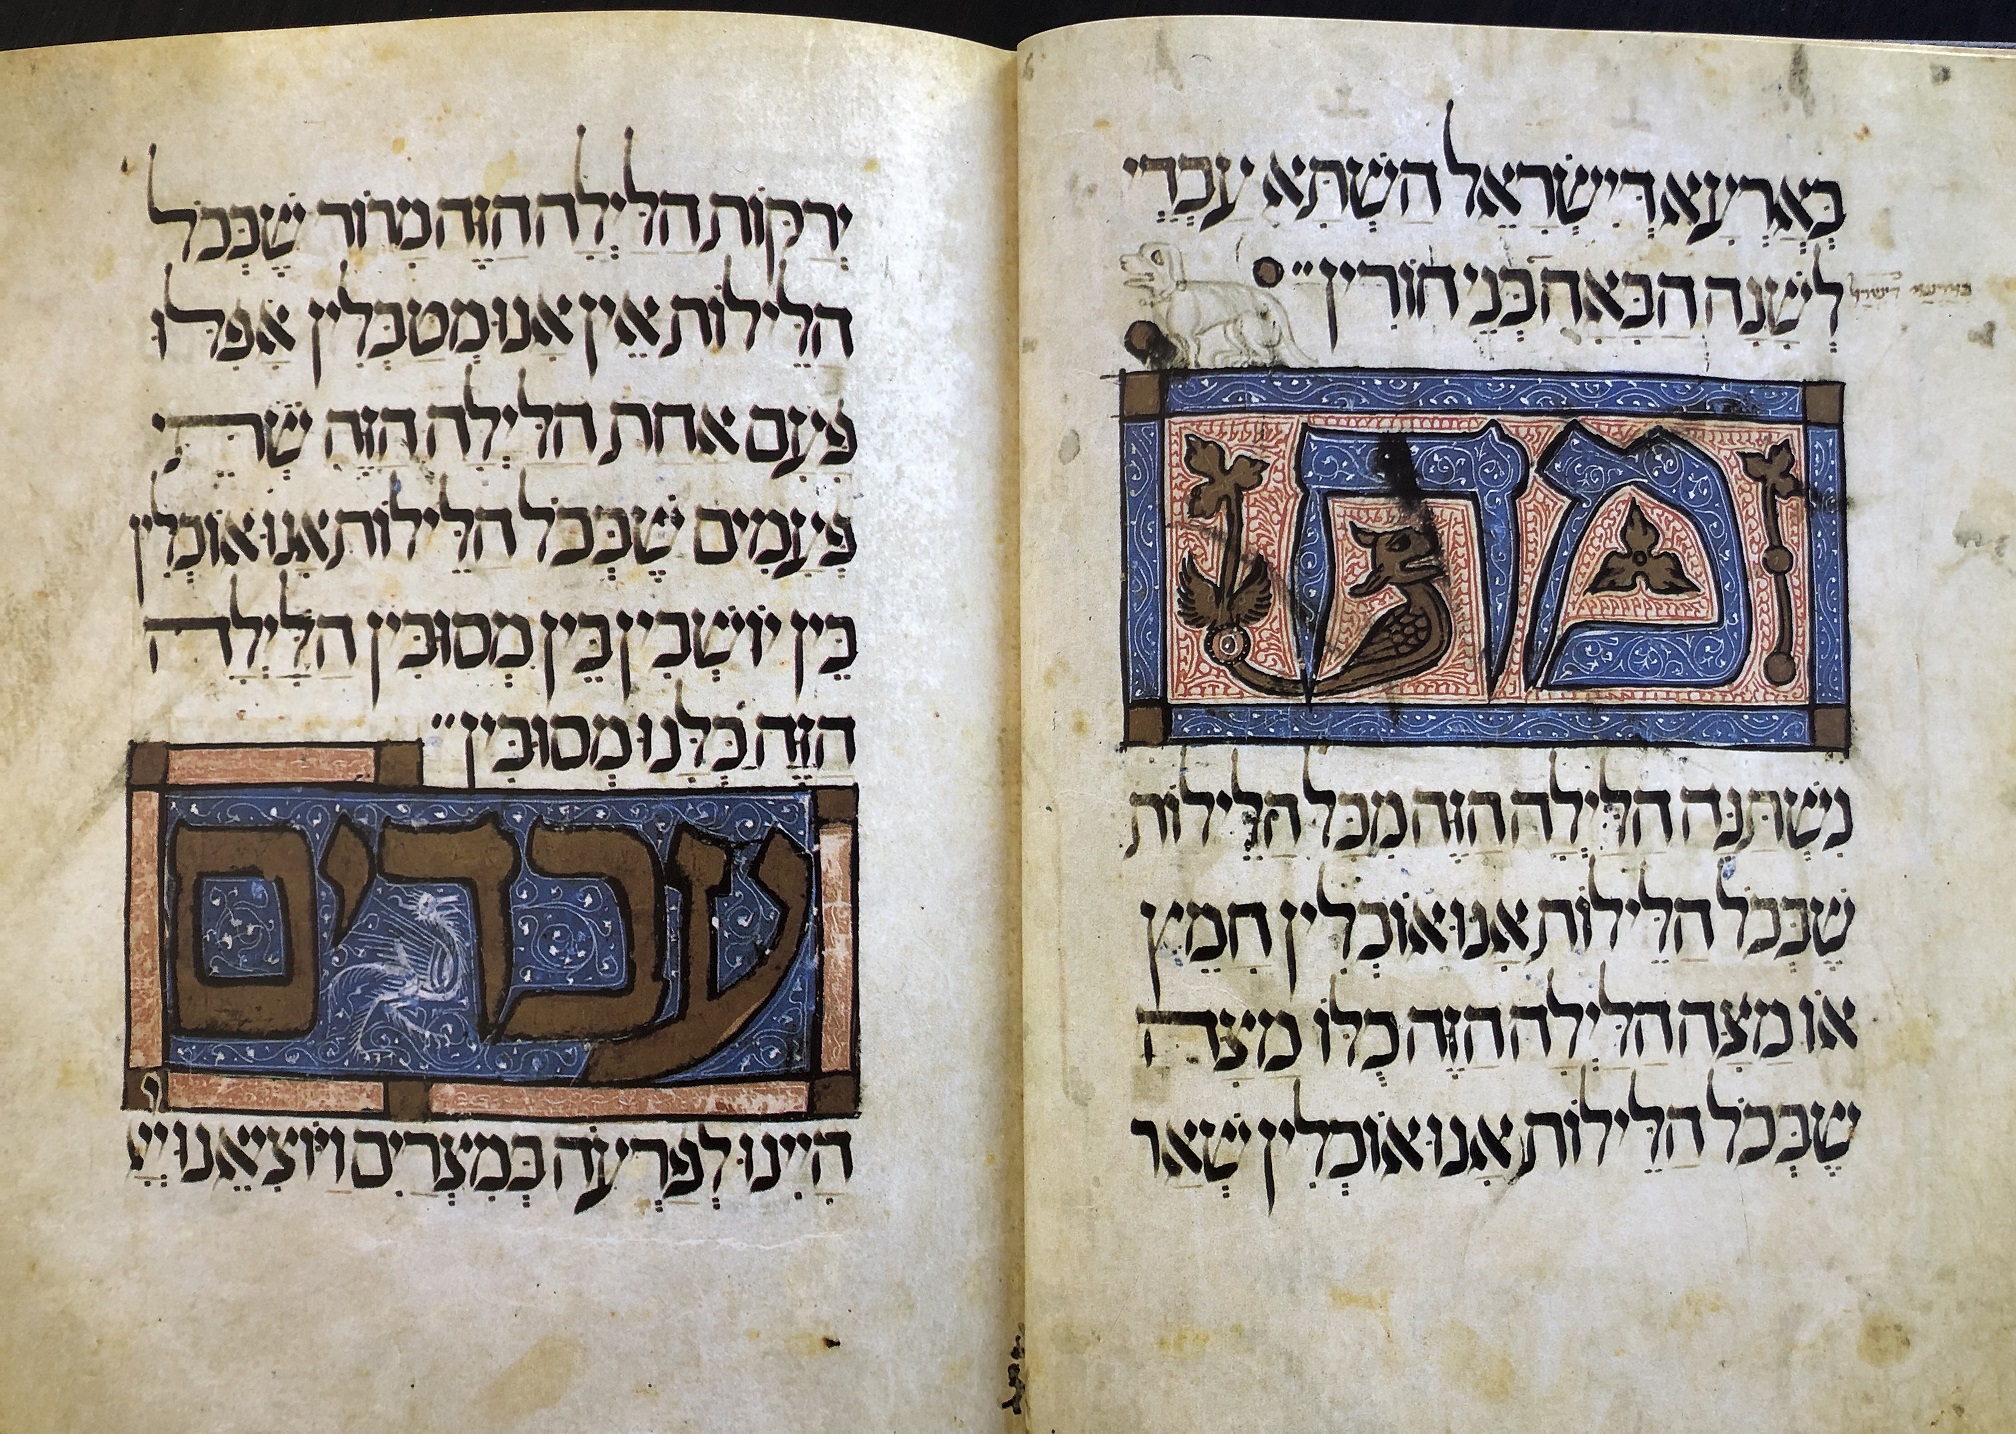 בְּאַרְעָא דְּיִשְׂרָאֵל הָשַׁתָּא עַבְדֵי
לְשָׁנָה הַבָּאָה בְּנֵי חוֹרִין״
בארעא דישראל
מה
נִשְׁתַּנָּה הַלַּיְלָה הַזֶּה מִכָּל הַלֵּילוֹת
שֶׁבְּכָל הַלֵּילוֹת אָנוּ אוֹכְלִין חָמֵץ
אוֹ מַצָּה הַלַּיְלָה הַזֶּה כֻלּוֹ מַצָּה
שֶׁבְּכָל הַלֵּילוֹת אָנוּ אוֹכְלִין שְׁאָר
יְרָקוֹת הַלַּיְלָה הַזֶּה מָרוֹר שֶׁבְּכָל
הַלֵּילוֹת אֵין אָנוּ מְטַבְּלִין אֲפִלּוּ
פַּעַם אַחַת הַלַּיְלָה הַזֶּה שְׁתֵּי
פְּעָמִים שֶׁבְּכָל הַלֵּילוֹת אָנוּ אוֹכְלִין
בֵּין יוֹשְׁבִין בֵּין מְסוּבִּין הַלַּיְלָה
הַזֶּה כֻּלָּנוּ מְסוּבִּין״
עבדים
הָיִינוּ לְפַרְעֹה בְּמִצְרַיִם וַיּוֹצִיאֵנוּ יְיָ